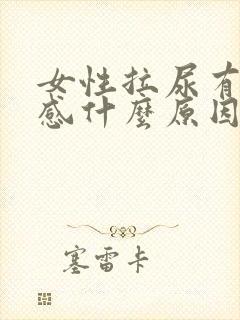 女性拉尿有
感什麼原因
塞雷卡